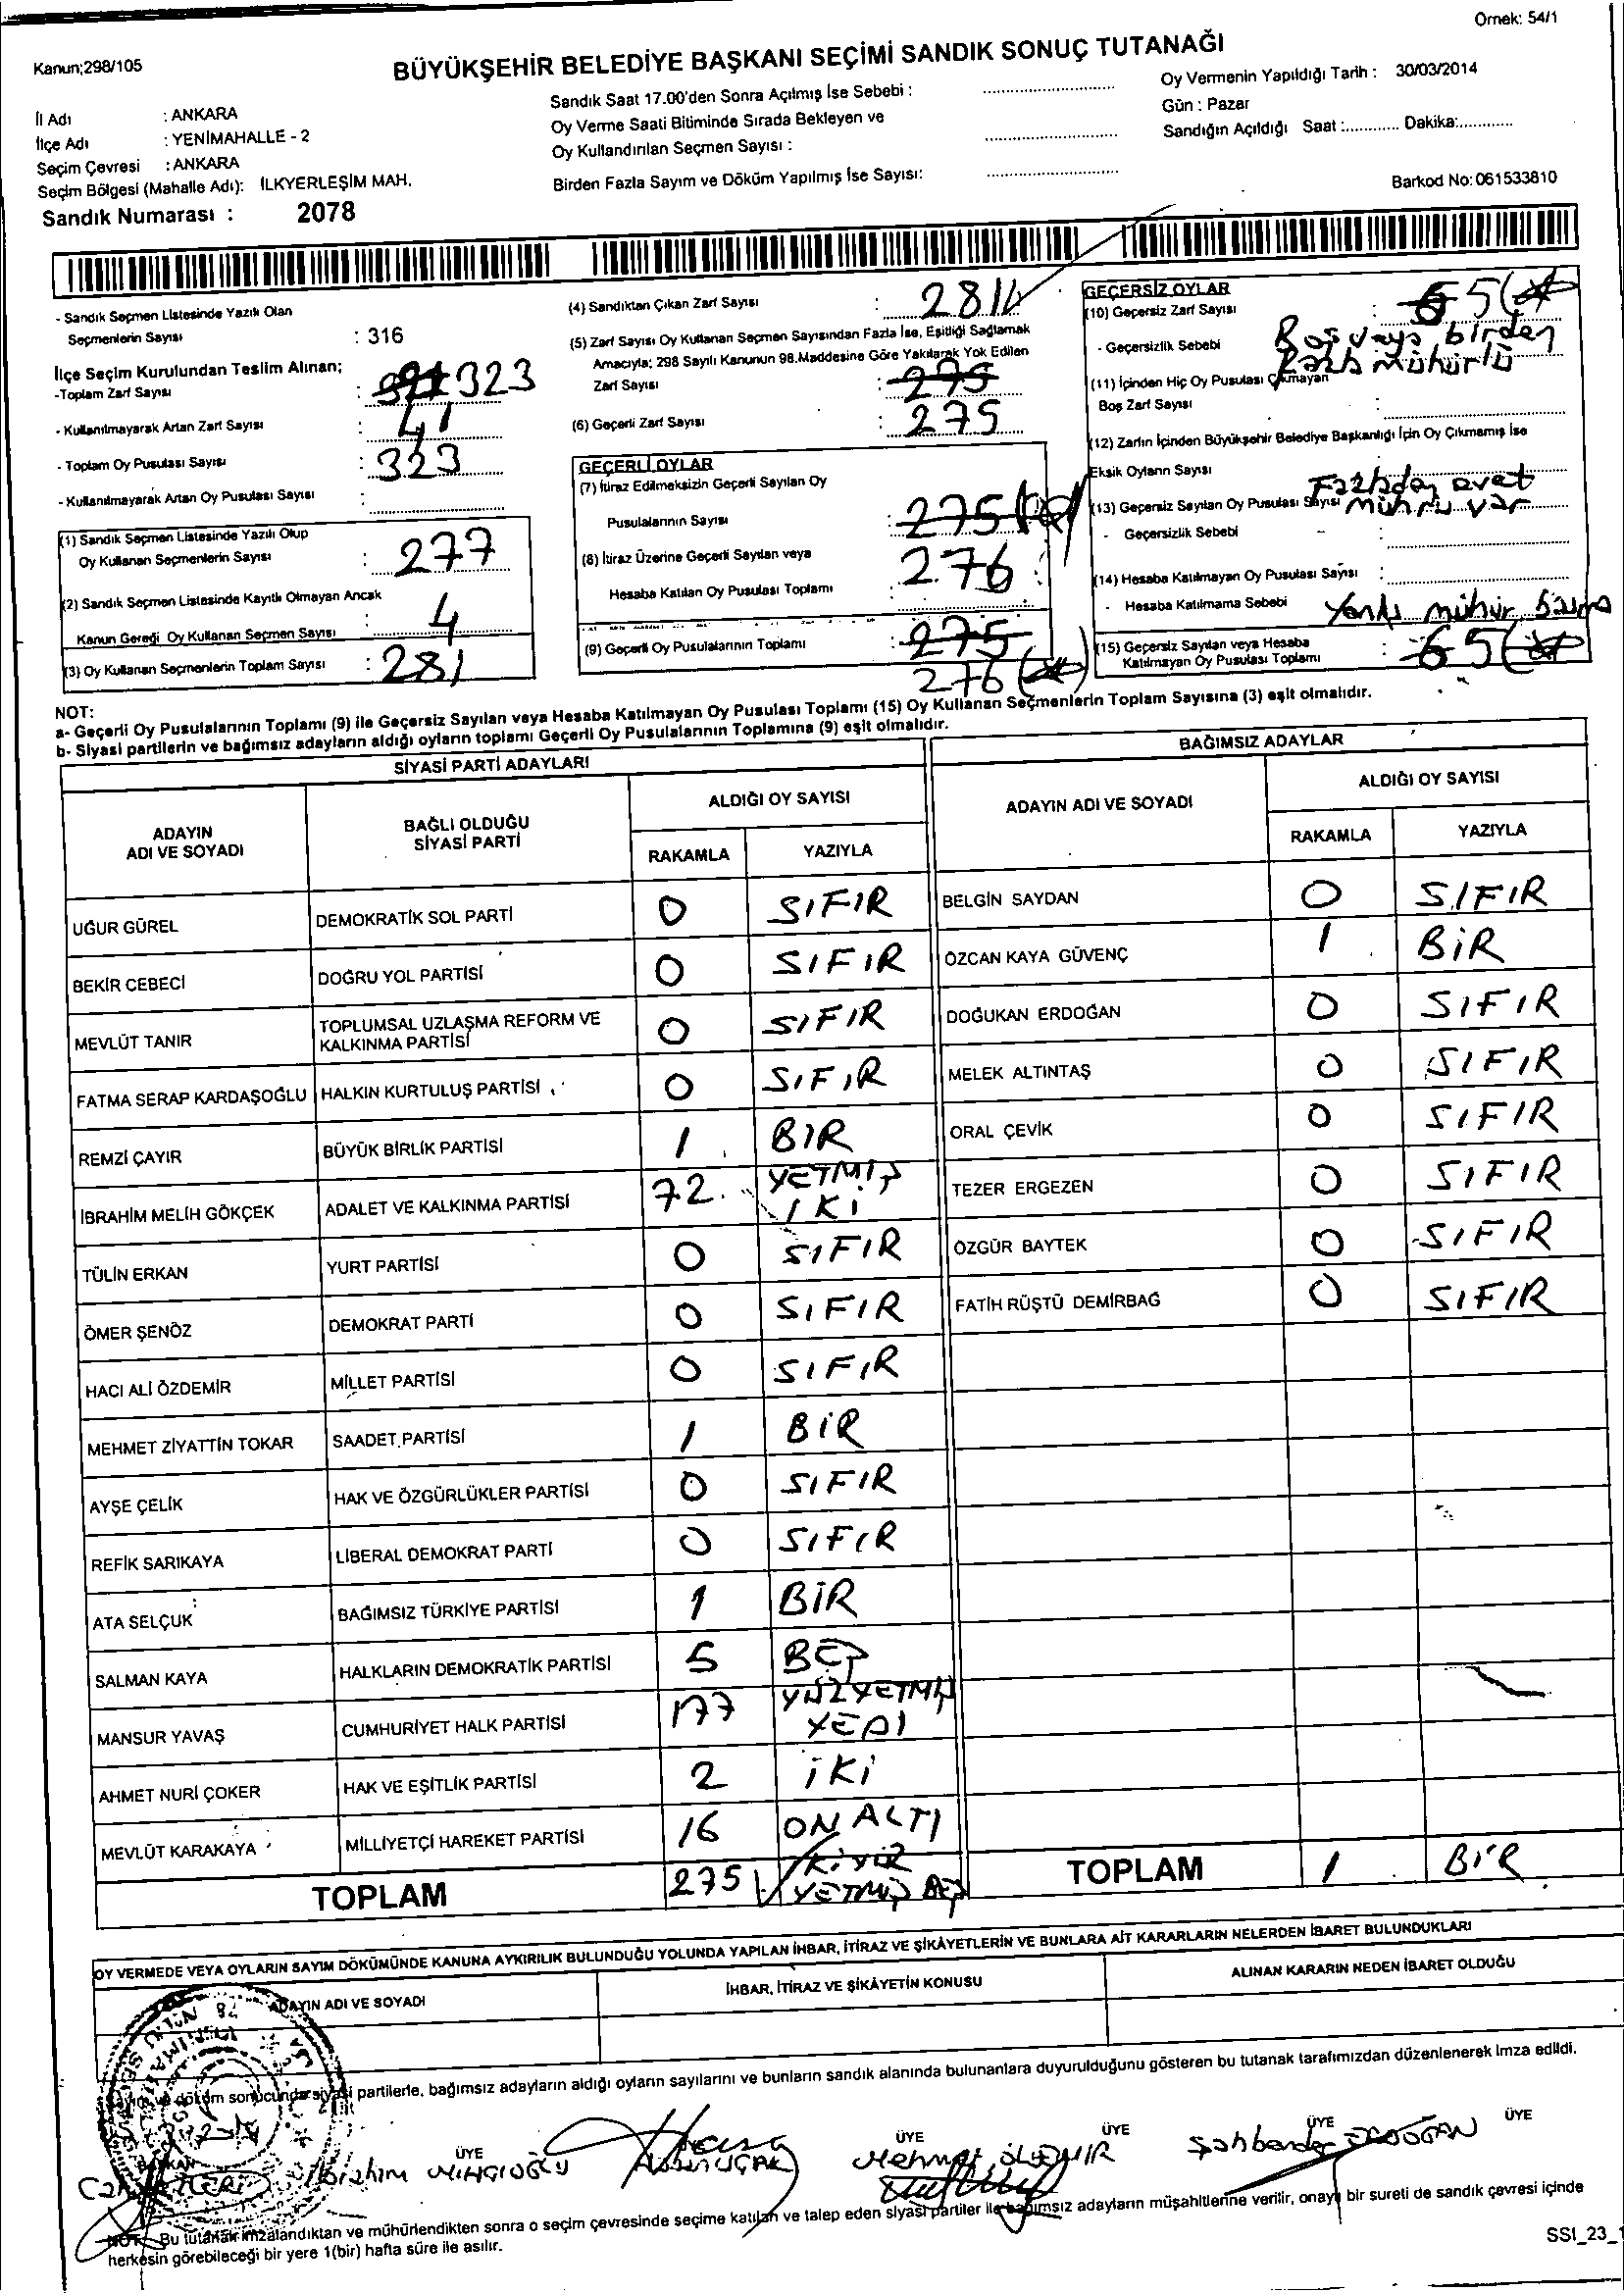 Örnek: 54/1
Kanun;298/105
BÜYÜKŞEHİR BELEDİYE BAŞKANI SEÇİMİ SANDIK SONUÇ TUTANAĞI
İl Adı : ANKARA
İlçe Adı : YENİMAHALLE - 2
Seçim Çevresi : ANKARA
Seçim Bölgesi (Mahalle Adı): İLKYERLEŞİM MAH.
Sandık Numarası : 2078
Sandık Saat 17.00'den Sonra Açılmış İse Sebebi :
Oy Verme Saati Bitiminde Sırada Bekleyen ve
Oy Kullandırılan Seçmen Sayısı :
Birden Fazla Sayım ve Döküm Yapılmış İse Sayısı:
Oy Vermenin Yapıldığı Tarih : 30/03/2014
Gün : Pazar
Sandığın Açıldığı Saat :............ Dakika:............
Barkod No: 061533810
- Sandık Seçmen Listesinde Yazılı Olan
Seçmenlerin Sayısı : 316
İlçe Seçim Kurulundan Teslim Alınan;
-Toplam Zarf Sayısı : 323
- Kullanılmayarak Artan Zarf Sayısı : 41
- Toplam Oy Pusulası Sayısı : 323
- Kullanılmayarak Artan Oy Pusulası Sayısı :
(1) Sandık Seçmen Listesinde Yazılı Olup
Oy Kullanan Seçmenlerin Sayısı : 277
(2) Sandık Seçmen Listesinde Kayıtlı Olmayan Ancak
Kanun Gereği Oy Kullanan Seçmen Sayısı : 4
(3) Oy Kullanan Seçmenlerin Toplam Sayısı : 281
(4) Sandıktan Çıkan Zarf Sayısı : 281
(5) Zarf Sayısı Oy Kullanan Seçmen Sayısından Fazla İse, Eşitliği Sağlamak
Amacıyla; 298 Sayılı Kanunun 98.Maddesine Göre Yakılarak Yok Edilen
Zarf Sayısı : 275
(6) Geçerli Zarf Sayısı : 275
GEÇERLİ OYLAR
(7) İtiraz Edilmeksizin Geçerli Sayılan Oy
Pusulalarının Sayısı : 275
(8) İtiraz Üzerine Geçerli Sayılan veya
Hesaba Katılan Oy Pusulası Toplamı : 276
(9) Geçerli Oy Pusulalarının Toplamı : 275
276
GEÇERSİZ OYLAR
(10) Geçersiz Zarf Sayısı : 6 5
- Geçersizlik Sebebi Boş veya birden
fazla mühürlü
(11) İçinden Hiç Oy Pusulası Çıkmayan
Boş Zarf Sayısı :
(12) Zarfın İçinden Büyükşehir Belediye Başkanlığı İçin Oy Çıkmamış İse
Eksik Oyların Sayısı
(13) Geçersiz Sayılan Oy Pusulası Sayısı Fazladan evet
mührü var
- Geçersizlik Sebebi :
(14) Hesaba Katılmayan Oy Pusulası Sayısı :
- Hesaba Katılmama Sebebi mühür
(15) Geçersiz Sayılan veya Hesaba
Katılmayan Oy Pusulası Toplamı : 6 5
NOT:
a- Geçerli Oy Pusulalarının Toplamı (9) ile Geçersiz Sayılan veya Hesaba Katılmayan Oy Pusulası Toplamı (15) Oy Kullanan Seçmenlerin Toplam Sayısına (3) eşit olmalıdır.
b- Siyasi partilerin ve bağımsız adayların aldığı oyların toplamı Geçerli Oy Pusulalarının Toplamına (9) eşit olmalıdır.
SİYASİ PARTİ ADAYLARI
ADAYIN
ADI VE SOYADI
BAĞLI OLDUĞU
SİYASİ PARTİ
ALDIĞI OY SAYISI
RAKAMLA YAZIYLA
UĞUR GÜREL DEMOKRATİK SOL PARTİ 0 SIFIR
BEKİR CEBECİ DOĞRU YOL PARTİSİ 0 SIFIR
MEVLÜT TANIR TOPLUMSAL UZLAŞMA REFORM VE
KALKINMA PARTİSİ 0 SIFIR
FATMA SERAP KARDAŞOĞLU HALKIN KURTULUŞ PARTİSİ 0 SIFIR
REMZİ ÇAYIR BÜYÜK BİRLİK PARTİSİ 1 BİR
İBRAHİM MELİH GÖKÇEK ADALET VE KALKINMA PARTİSİ 72 YETMİŞ
İKİ
TÜLİN ERKAN YURT PARTİSİ 0 SIFIR
ÖMER ŞENÖZ DEMOKRAT PARTİ 0 SIFIR
HACI ALİ ÖZDEMİR MİLLET PARTİSİ 0 SIFIR
MEHMET ZİYATTİN TOKAR SAADET PARTİSİ 1 BİR
AYŞE ÇELİK HAK VE ÖZGÜRLÜKLER PARTİSİ 0 SIFIR
REFİK SARIKAYA LİBERAL DEMOKRAT PARTİ 0 SIFIR
ATA SELÇUK BAĞIMSIZ TÜRKİYE PARTİSİ 1 BİR
SALMAN KAYA HALKLARIN DEMOKRATİK PARTİSİ 5 BEŞ
MANSUR YAVAŞ CUMHURİYET HALK PARTİSİ 177 YÜZYETMİŞ
YEDİ
AHMET NURİ ÇOKER HAK VE EŞİTLİK PARTİSİ 2 İKİ
MEVLÜT KARAKAYA MİLLİYETÇİ HAREKET PARTİSİ 16 ONALTI
TOPLAM 275 İKİYÜZ
YETMİŞ BEŞ
BAĞIMSIZ ADAYLAR
ADAYIN ADI VE SOYADI
ALDIĞI OY SAYISI
RAKAMLA YAZIYLA
BELGİN SAYDAN 0 SIFIR
ÖZCAN KAYA GÜVENÇ 1 BİR
DOĞUKAN ERDOĞAN 0 SIFIR
MELEK ALTINTAŞ 0 SIFIR
ORAL ÇEVİK 0 SIFIR
TEZER ERGEZEN 0 SIFIR
ÖZGÜR BAYTEK 0 SIFIR
FATİH RÜŞTÜ DEMİRBAĞ 0 SIFIR
TOPLAM 1 BİR
OY VERMEDE VEYA OYLARIN SAYIM DÖKÜMÜNDE KANUNA AYKIRILIK BULUNDUĞU YOLUNDA YAPILAN İHBAR, İTİRAZ VE ŞİKAYETLERİN VE BUNLARA AİT KARARLARIN NELERDEN İBARET BULUNDUKLARI
ADAYIN ADI VE SOYADI
İHBAR, İTİRAZ VE ŞİKAYETİN KONUSU
ALINAN KARARIN NEDEN İBARET OLDUĞU
Sayım ve döküm sonucunda siyasi partilerle, bağımsız adayların aldığı oyların sayılarını ve bunların sandık alanında bulunanlara duyurulduğunu gösteren bu tutanak tarafımızdan düzenlenerek imza edildi.
BAŞKAN ÜYE ÜYE ÜYE ÜYE ÜYE
İbrahim Mehmet Şahbender ERDOĞAN
NOT: Bu tutanak imzalandıktan ve mühürlendikten sonra o seçim çevresinde seçime katılan ve talep eden siyasi partiler ile bağımsız adayların müşahitlerine verilir, onaylı bir sureti de sandık çevresi içinde
herkesin görebileceği bir yere 1(bir) hafta süre ile asılır.
SSI_23_1